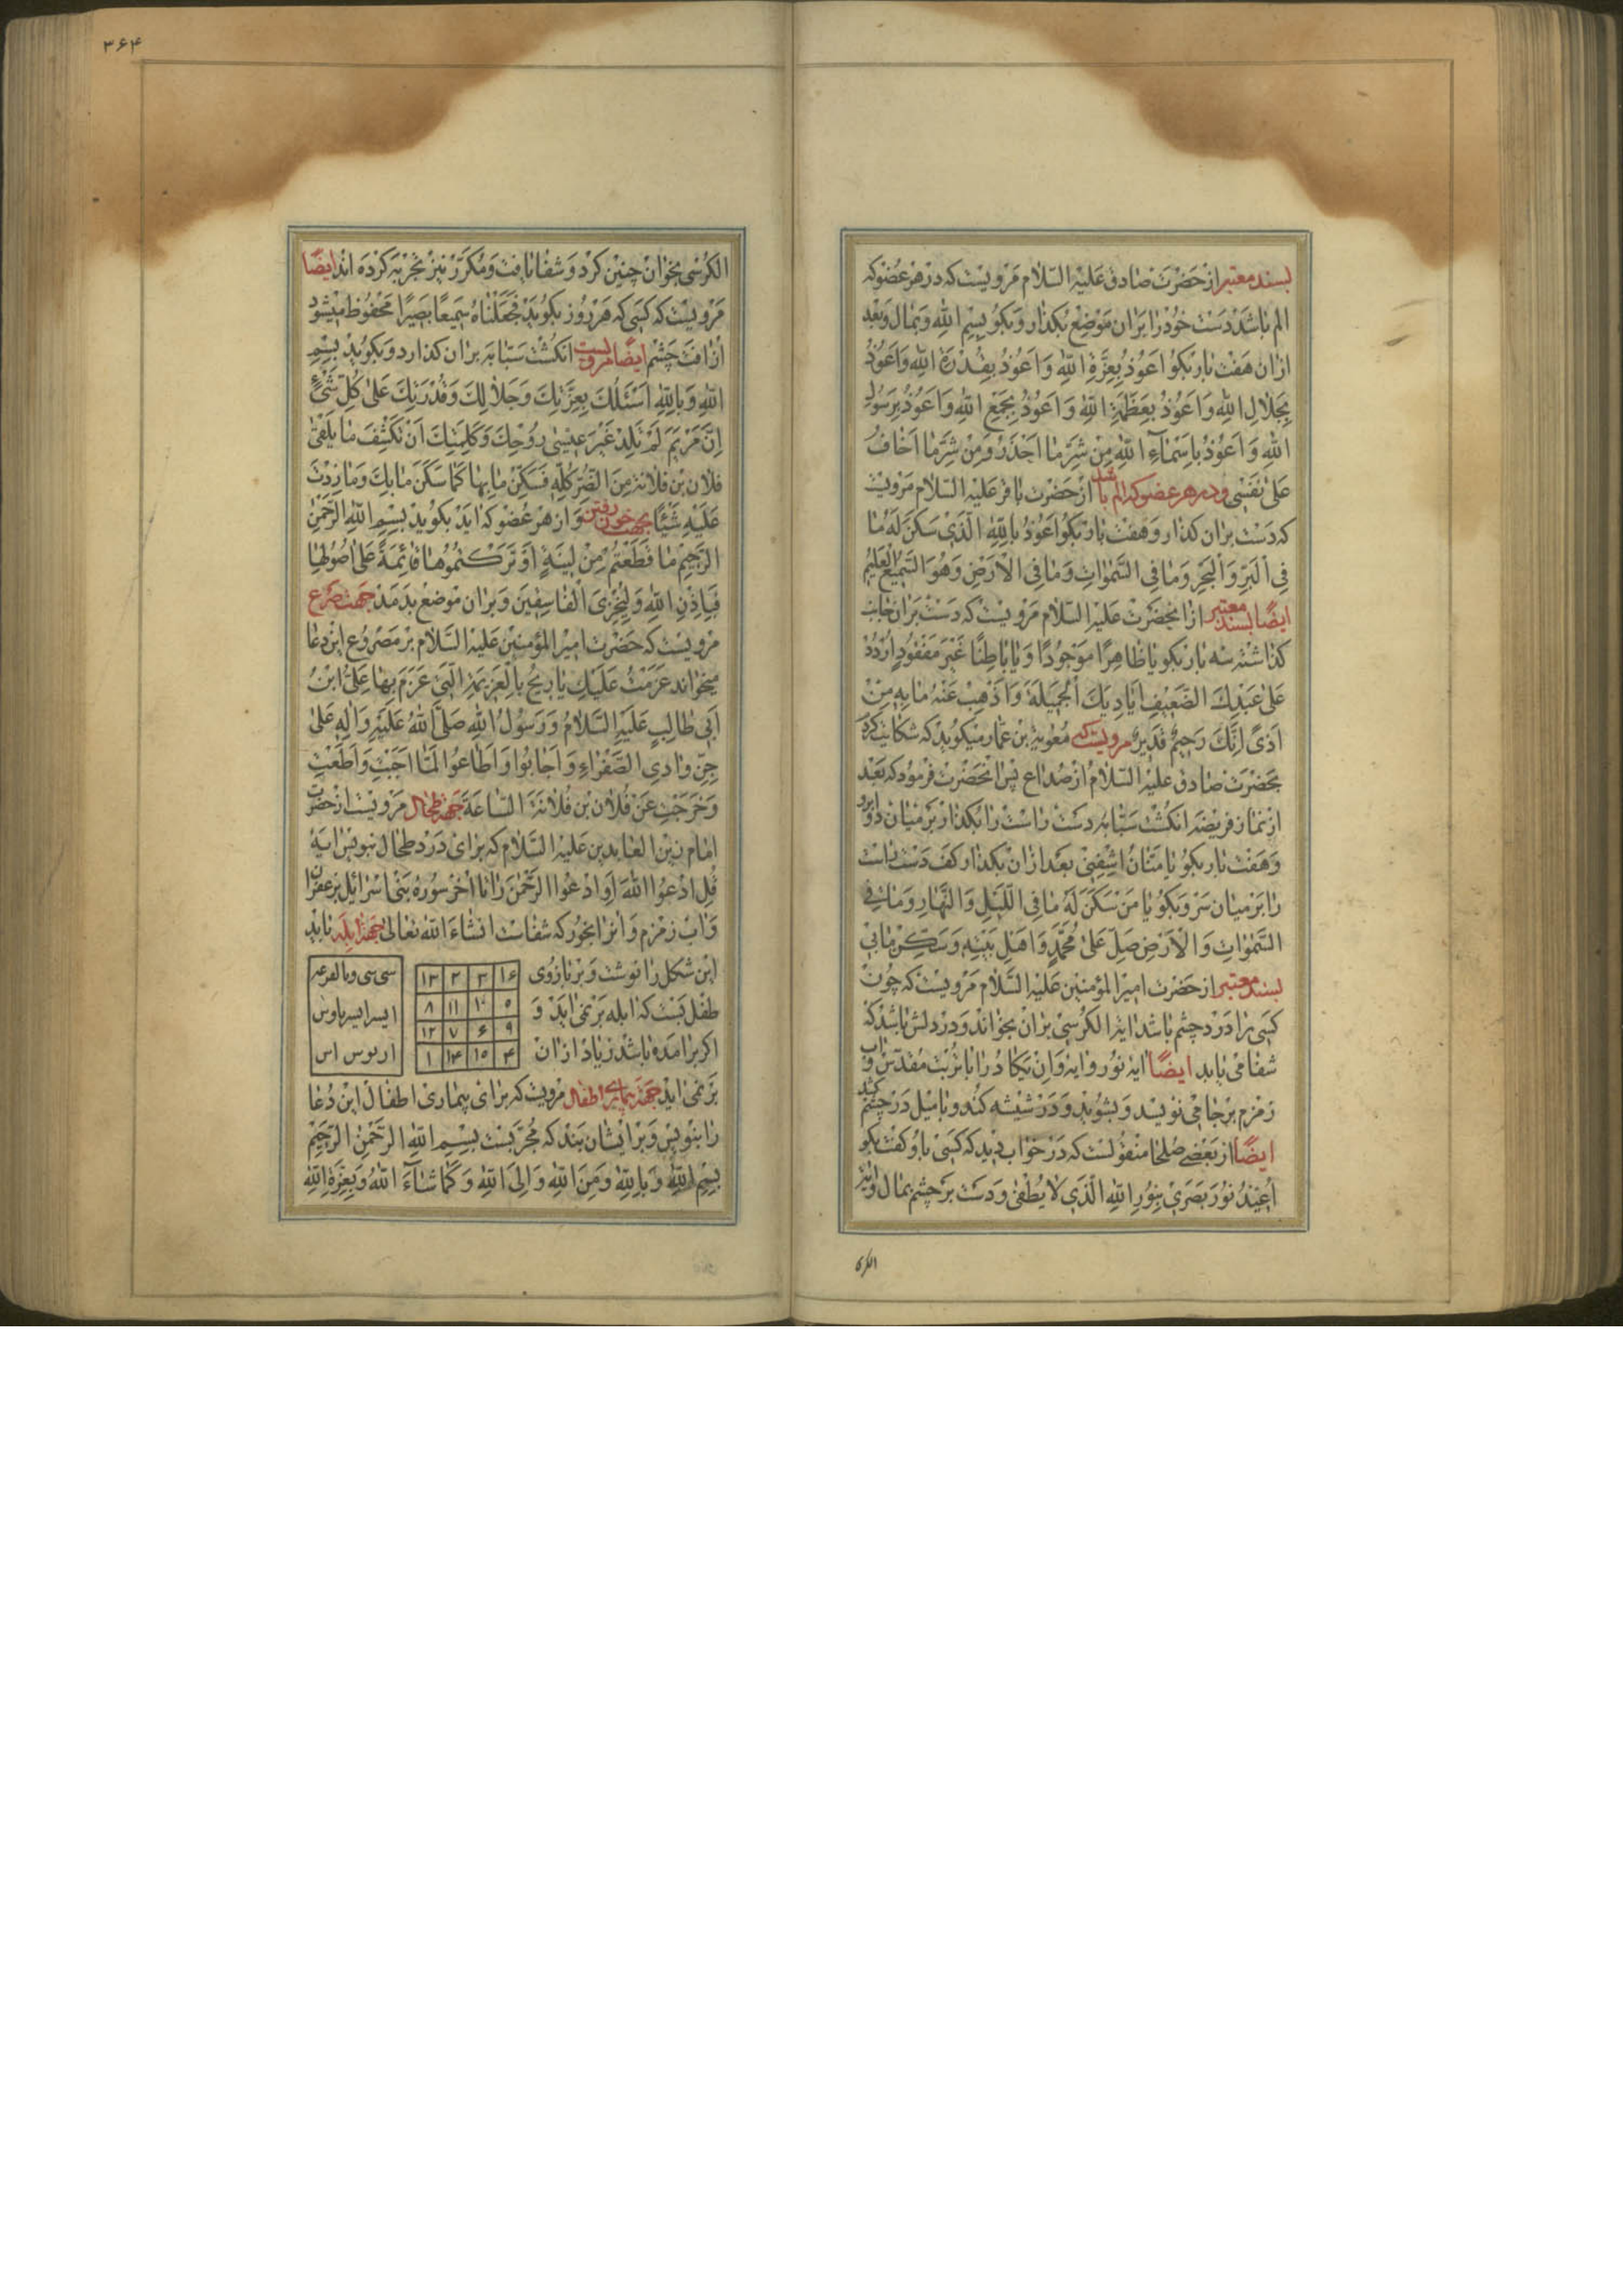 بسند معتبر از حضرت صادق علیه السلام مرویست که در هر عضو که
الم باشد دست خود را بران موضع بکذار و بکو بسم الله و بمال و بعد
ازان هفت بار بکو اعوذ بعزة الله و اعوذ بقدرة الله و اعوذ
بجلال الله و اعوذ بعظمة الله و اعوذ بجمع الله و اعوذ برسول
الله و اعوذ باسماء الله من شر ما احذر و من شر ما اخاف
علی نفسی و در هر عضو که الم باشد از حضرت باقر علیه السلام مرویست
که دست بران کذار و هفت بار بکو اعوذ بالله الذی سکن له ما
فی البر و البحر و ما فی السموات و ما فی الارض و هو السمیع العلیم
ایضا بسند معتبر از انحضرت علیه السلام مرویست که دست بران جانب
کذاشته سه بار بکو یا ظاهرا موجودا و یا باطنا غیر مفقود اردد
علی عبدک الضعیف ایادیک الجمیلة و اذهب عنه ما به من
اذی انک رحیم قدیر مرویست که معویة بن عمار میکوید که شکایت کرد
بحضرت صادق علیه السلام از صداع پس انحضرت فرمود که بعد
از نماز فریضه انکشت سبابه دست راست را بکذار بر میان دو ابرو
و هفت بار بکو یا منان اشفنی بعد ازان بکذار کف دست راست
را بر میان سر و بکو یا من سکن له ما فی اللیل و النهار و ما فی
السموات و الارض صل علی محمد و اهل بیته و سکن ما بی
بسند معتبر از حضرت امیر المؤمنین علیه السلام مرویست که چون
کسی را درد چشم باشد ایة الکرسی بران بخواند و در دلش باشد که
شفا می یابد ایضا ایه نور و ایه و ان یکاد را با تربت مقدس و اب
زمزم بر جامی نویسد و بشوید و در شیشه کند و با میل در چشم کشد
ایضا از بعضی صلحا منقولست که در خواب دید که کسی با و کفت بکو
اعیذ نور بصری بنور الله الذی لا یطفی و دست بر چشم بمال و ایة
الکرسی
۳۶۴
الکرسی بخوان چنین کرد و شفا یافت و مکرر نیز تجربه کرده اند ایضا
مرویست که کسی که هر روز بکوید فجعلناه سمیعا بصیرا محفوظ میشود
از افت چشم ایضا مرویست انکشت سبابه بران کذارد و بکوید بسم
الله و بالله اسئلک بعزتک و جلالک و قدرتک علی کل شیء
ان مریم لم تلد غیر عیسی روحک و کلمتک ان تکشف ما یلقی
فلان بن فلانة من الضر کله فسکن ما بها کما سکن ما بک و ما زدت
علیه شیئا بجهت خون رفتن و از هر عضو که اید بکوید بسم الله الرحمن
الرحیم ما قطعتم من لینة او ترکتموها قائمة علی اصولها
فباذن الله و لیخزی الفاسقین و بران موضع بدمد جهت صرع
مرویست که حضرت امیر المؤمنین علیه السلام بر مصروع این دعا
میخواند عزمت علیک یا ریح بالعزیمة التی عزم بها علی ابن
ابی طالب علیه السلام و رسول الله صلی الله علیه و اله علی
جن وادی الصفراء و اجابوا و اطاعوا لما اجبت و اطعت
و خرجت عن فلان بن فلانة الساعة جهة طحال مرویست از حضرت
امام زین العابدین علیه السلام که برای درد طحال بنویس ایه
قل ادعوا الله او ادعوا الرحمن را تا اخر سوره بنی اسرائیل بزعفران
و اب زمزم و انرا بخور که شفاست انشاء الله تعالی جهة ابله باید
این شکل را نوشت و بر بازوی
طفل بست که ابله بر نمی اید و
اکر برامده باشد زیاد ازان
۱۶ ۳ ۲ ۱۳
۵ ۱۰ ۱۱ ۸
۹ ۶ ۷ ۱۲
۴ ۱۵ ۱۴ ۱
اریوس اس
بر نمی اید جهة بیماری اطفال مرویست که برای بیماری اطفال این دعا
را بنویس و بر ایشان بند که مجربست بسم الله الرحمن الرحیم
بسم الله و بالله و من الله و الی الله و کما شاء الله و بعزة الله